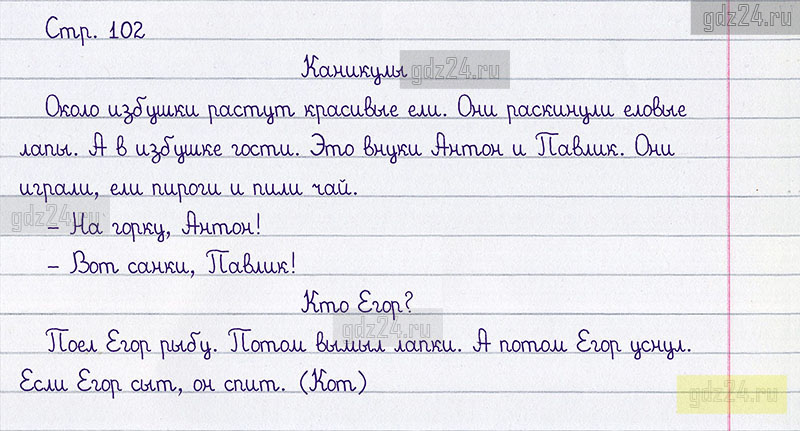 gdz24.ru
Стр. 102
Каникулы
gdz24.ru
Около избушки растут красивые ели. Они раскинули еловые
лапы. А в избушке гости. Это внуки Антон и Павлик. Они
играли, ели пироги и пили чай.
gdz24.ru
– На горку, Антон!
– Вот санки, Павлик!
Кто Егор?
gdz24.ru
Поел Егор рыбу. Потом вымыл лапки. А потом Егор уснул.
Если Егор сыт, он спит. (Кот)
gdz24.ru